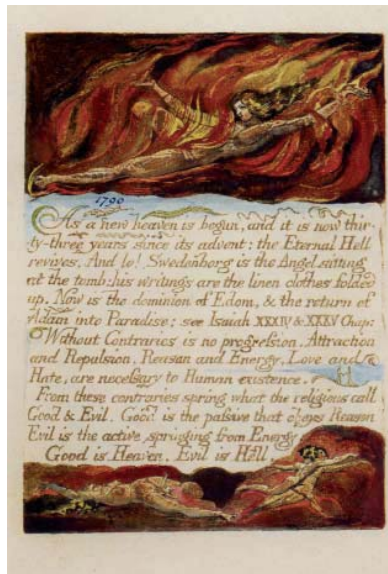 1790
As a new heaven is begun, and it is now thir-
ty-three years since its advent: the Eternal Hell
revives. And lo! Swedenborg is the Angel sitting
at the tomb: his writings are the linen clothes folded
up. Now is the dominion of Edom, & the return of
Adam into Paradise; see Isaiah XXXIV & XXXV Chap:
Without Contraries is no progression. Attraction
and Repulsion, Reason and Energy, Love and
Hate, are necessary to Human existence.
From these contraries spring what the religious call
Good & Evil. Good is the passive that obeys Reason
Evil is the active springing from Energy
Good is Heaven. Evil is Hell